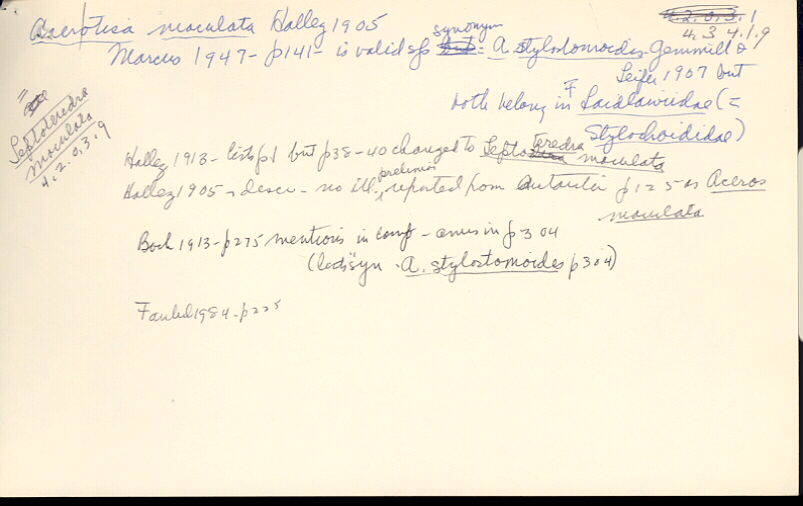 Acerotisa maculata Hallez 1905
4.2.0.3.1
4.3.4.1.9
Marcus 1947 - p141 - is valid sp synonym = A. stylostomoides Gemmill &
Leiper 1907 but
both belong in F Laidlawiidae (=
Stylochoididae)
=
Leptoteredra
maculata
4.2.0.3.9
Hallez 1913 - lists p1 but p38-40 changed to Leptoteredra maculata
Hallez 1905 - descr - no ill., prelimin reported from Antarctic p125 as Aceros
maculata
Bock 1913 - p275 mentions in comp - anus in p304
(lists syn - A. stylostomoides p304)
Faubel 1984 - p225